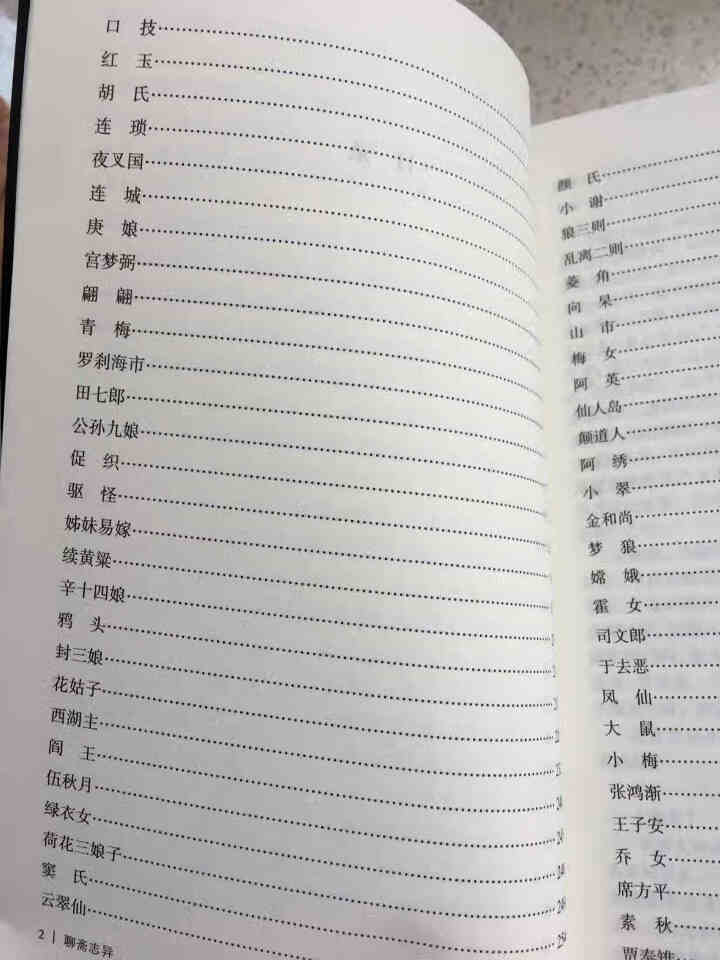 口 技
红 玉
胡 氏
连 琐
夜叉国
连 城
庚 娘
宫梦弼
翩 翩
青 梅
罗刹海市
田七郎
公孙九娘
促 织
驱 怪
姊妹易嫁
续黄粱
辛十四娘
鸦 头
封三娘
花姑子
西湖主
阎 王
伍秋月
绿衣女
荷花三娘子
窦 氏
云翠仙
2 | 聊斋志异
颜 氏
小 谢
狼三则
乱离二则
菱 角
向 杲
山 市
梅 女
阿 英
仙人岛
颠道人
阿 绣
小 翠
金和尚
梦 狼
嫦 娥
霍 女
司文郎
于去恶
凤 仙
大 鼠
小 梅
张鸿渐
王子安
乔 女
席方平
素 秋
贾奉雉